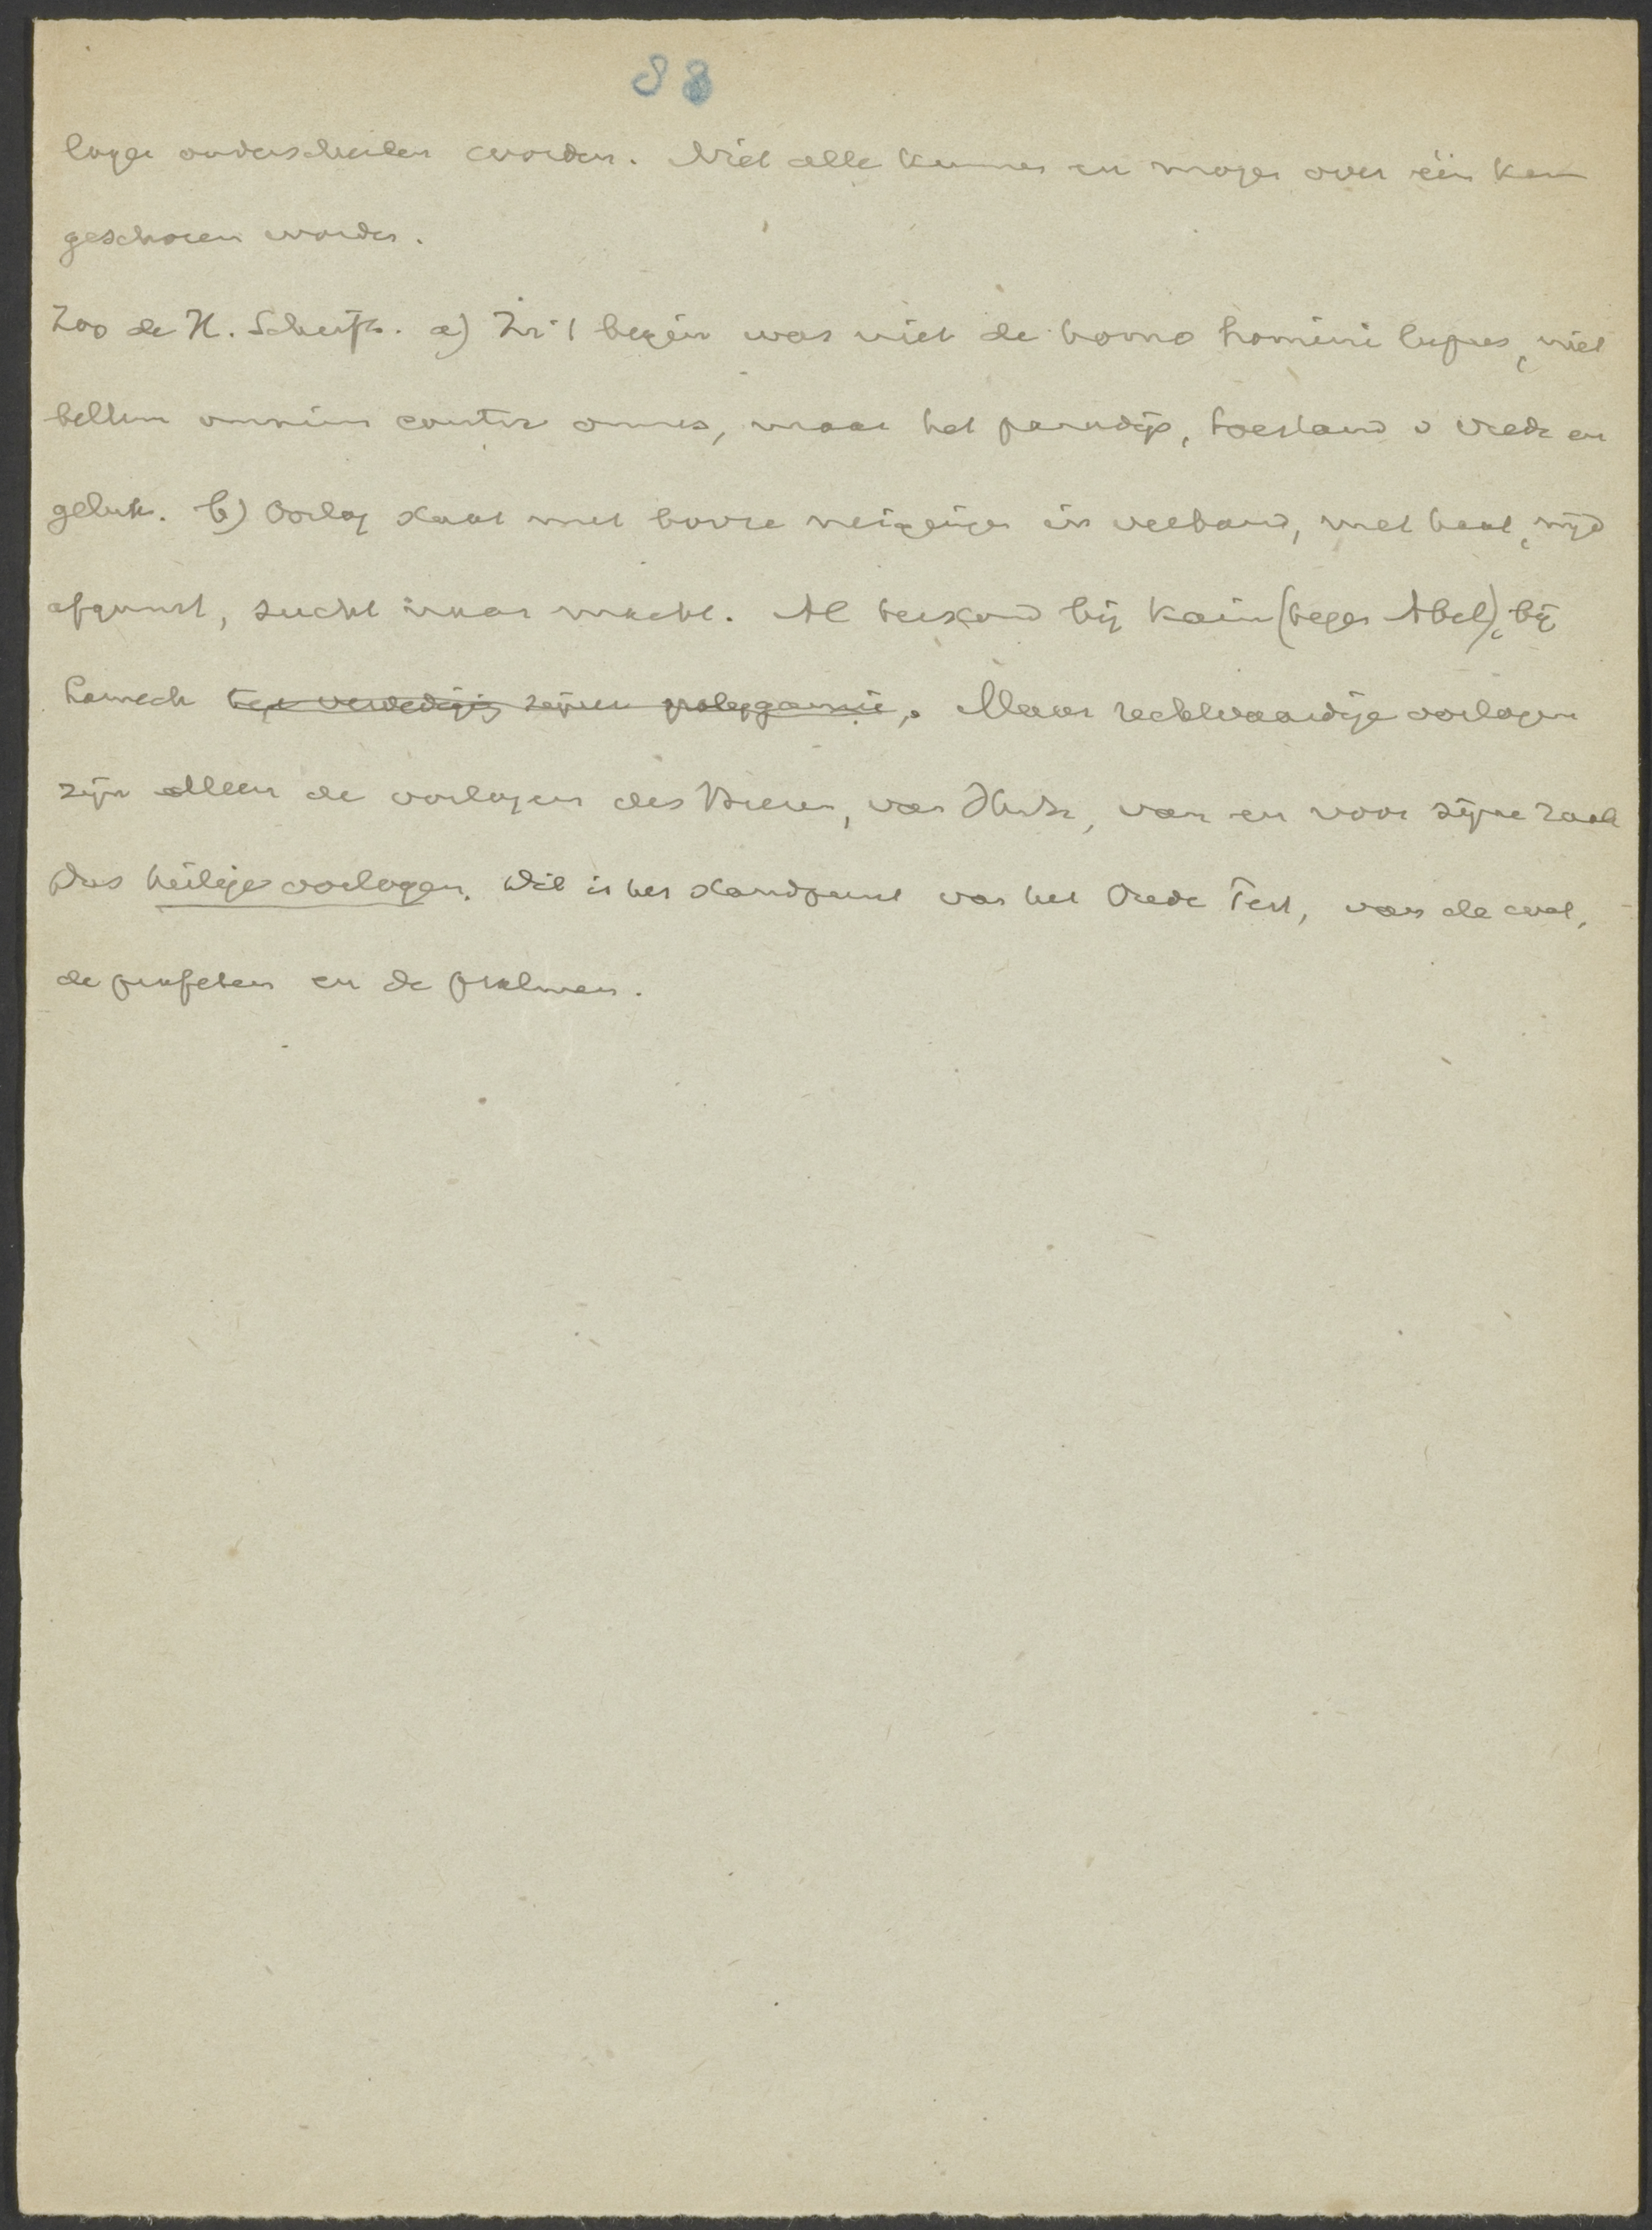 88
logen onderscheiden worden. Niet alle kunnen en mogen over één kam
geschoren worden.
Zoo de H. Schrift. a) In 't begin was niet de homo homini lupus, niet
bellum omnium contra omnes, maar het paradijs, toestand v vrede en
geluk. b) Oorlog staat met booze neigingen in verband, met haat, nijd
afgunst, zucht naar macht. Al terstond bij Kain (tegen Abel), bij
Lamech ter verdediging zijner polygamie,. Maar rechtvaardige oorlogen
zijn alleen de oorlogen des Heeren, van Hem, van en voor zijne zaak
Dus heilige oorlogen. Dit is het standpunt van het Oude Test, van de wet,
de profeten en de psalmen.